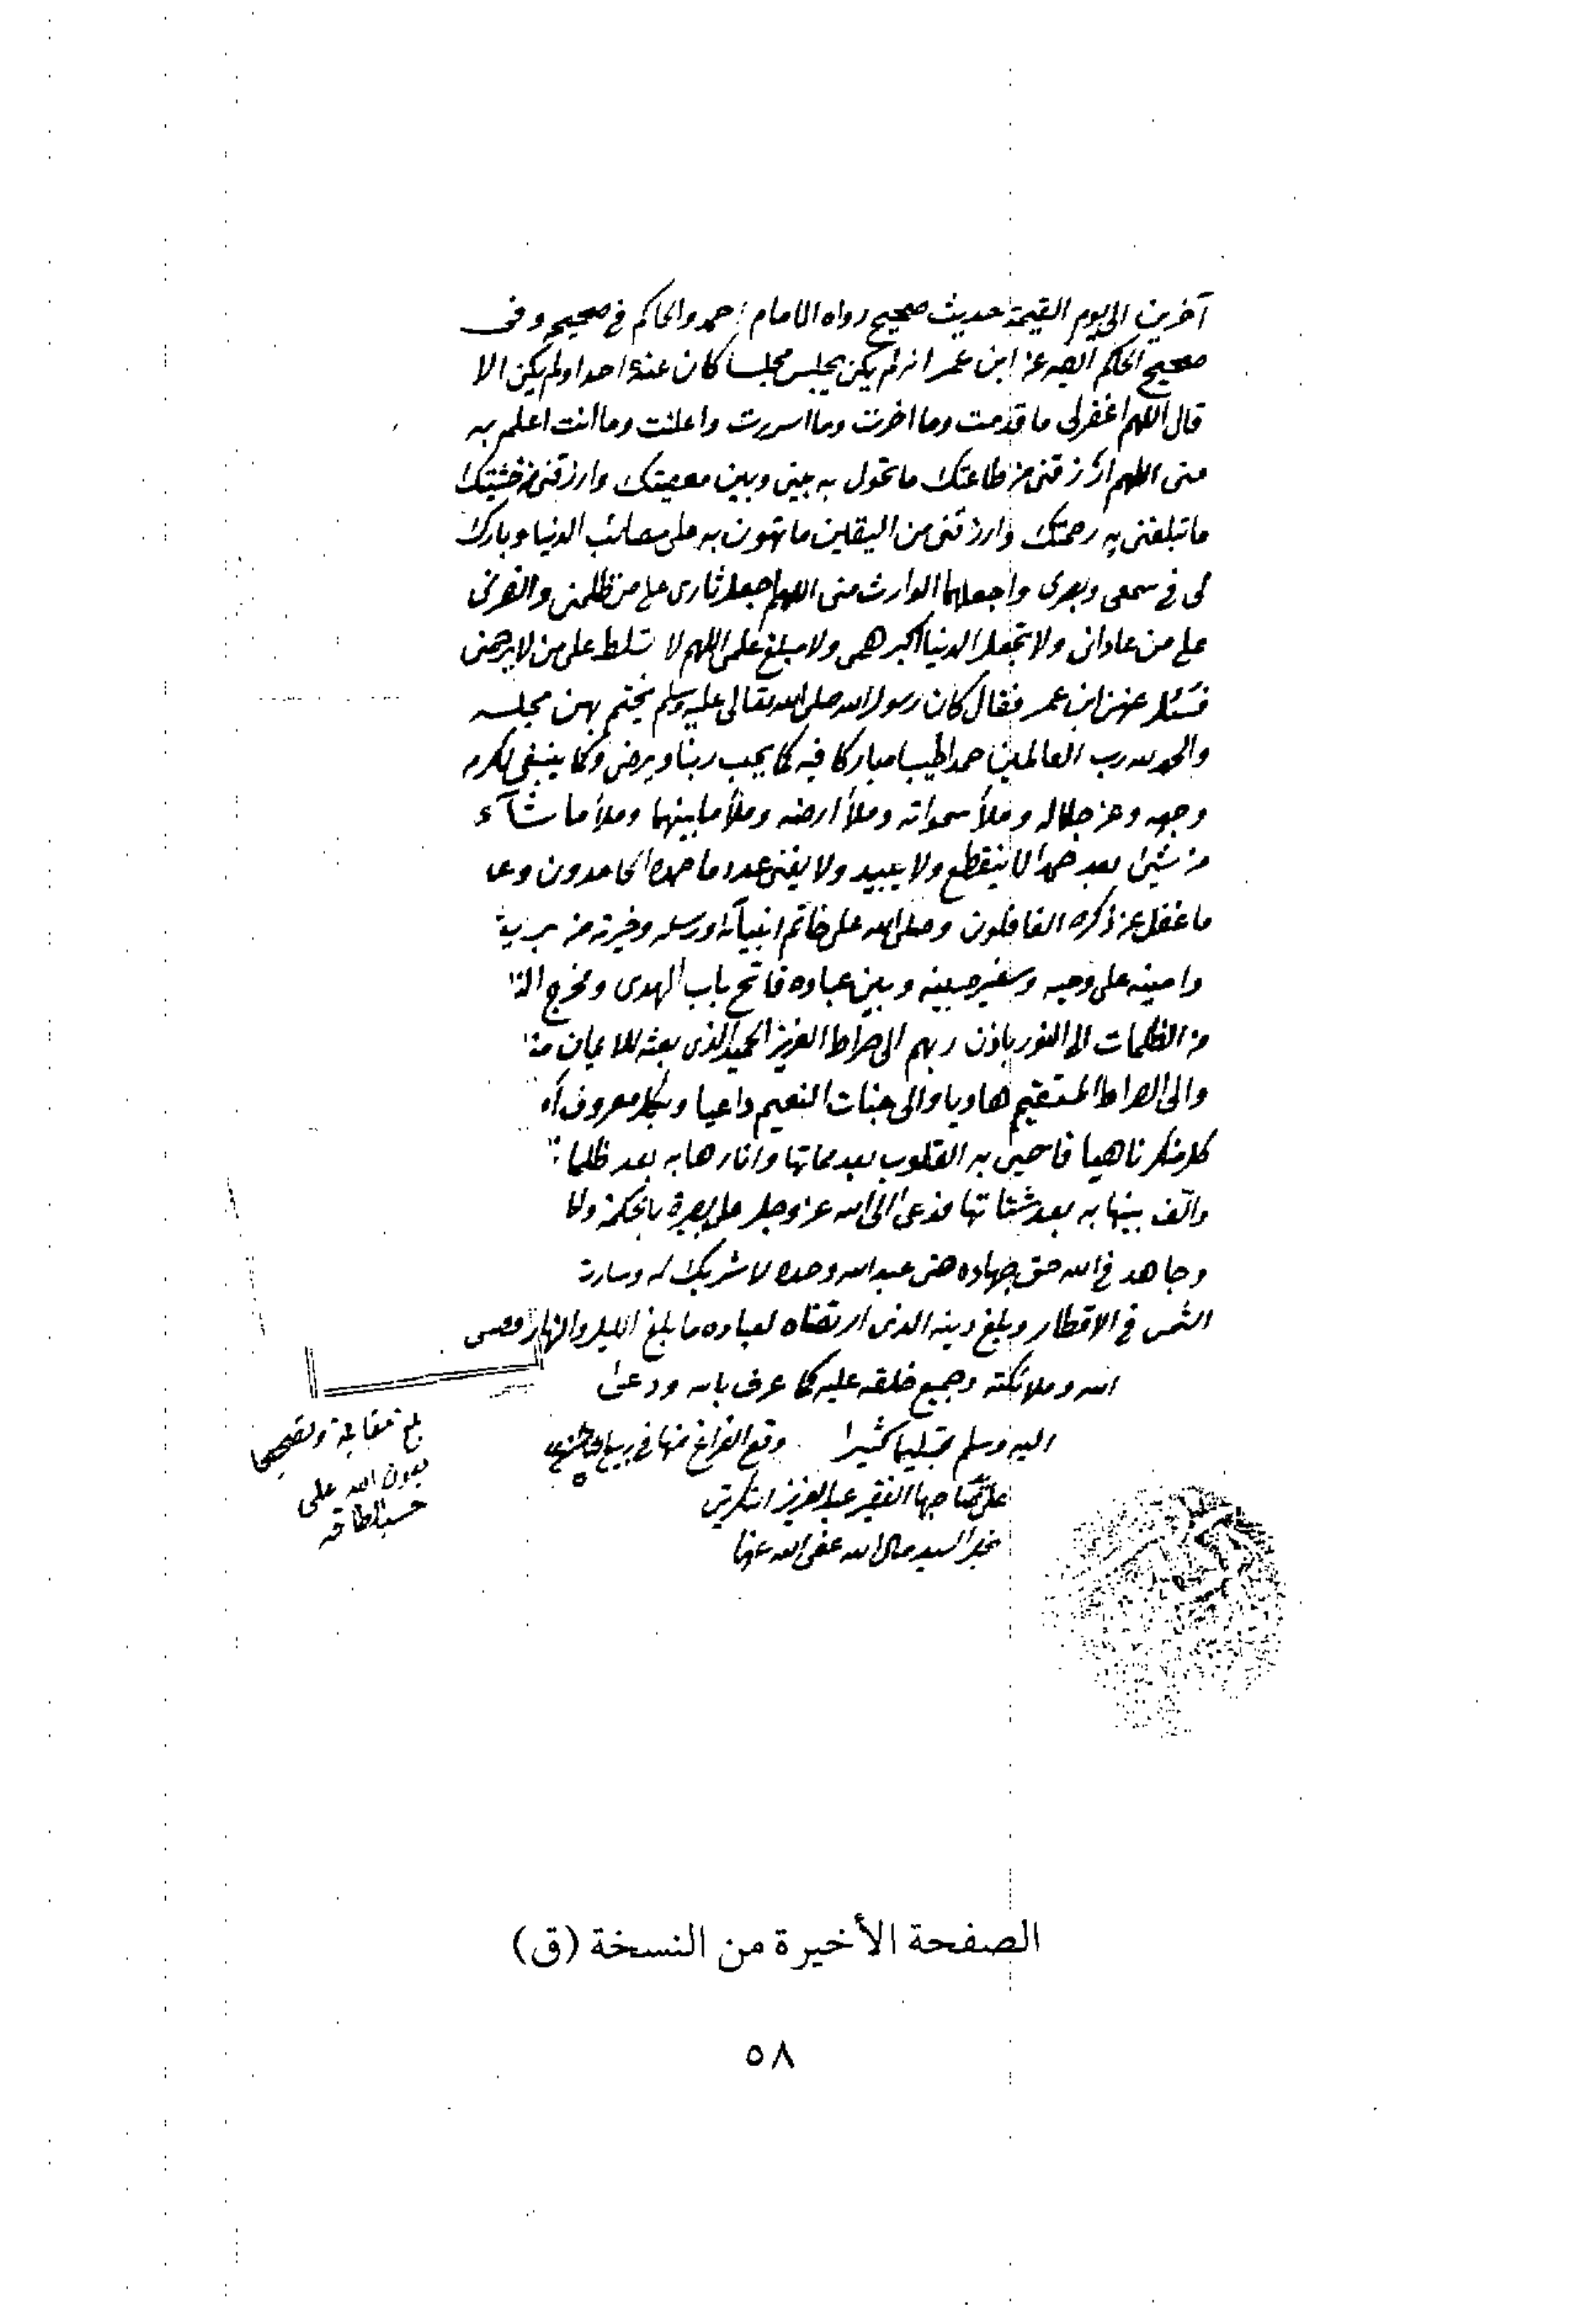 آخرين الى يوم القيمة حديث صحيح رواه الامام احمد والحاكم في صحيحه وفى
صحيح الحاكم ايضا عن ابن عمر انه لم يكن يجلس مجلسا كان عنده احد اولم يكن الا
قال اللهم اغفرلى ما قدمت وما اخرت وما اسررت وما اعلنت وما انت اعلم به
منى اللهم ارزقنى من طاعتك ما تحول به بينى وبين معصيتك وارزقنى من خشيتك
ما تبلغنى به رحمتك وارزقنى من اليقين ما تهون به على مصائب الدنيا وبارك
لى فى سمعى وبصرى واجعلهما الوارث منى اللهم اجعل ثارى على من ظلمنى وانصرنى
على من عادانى ولا تجعل الدنيا اكبر همى ولا مبلغ علمى اللهم لا تسلط على من لا يرحمنى
فسئل عنهن ابن عمر فقال كان رسول الله صلى الله تعالى عليه وسلم يختم بهن مجلسه
والحمد لله رب العالمين حمدا طيبا مباركا فيه كما يحب ربنا ويرضى وكما ينبغى لكرم
وجهه وعز جلاله وملأ سمواته وملأ ارضه وملأ ما بينهما وملأ ما شآء
من شيئ بعد حمدا لا ينقطع ولا يبيد ولا يفنى عدد ما حمده الحامدون وعد
ما غفل عن ذكره الغافلون وصلى الله على خاتم انبيآئه ورسله وخيرته من بريته
وامينه على وحيه وسفيره بينه وبين عباده فاتح باب الهدى ومخرج النا
من الظلمات الى النور باذن ربهم الى صراط العزيز الحميد الذى بعثه للايمان منا
والى الصراط المستقيم هاديا والى جنات النعيم داعيا وبكل معروف آم
كل منكر ناهيا فاحيى به القلوب بعد مماتها وانارها به بعد ظلما
والّف بينها به بعد شتاتها فدعى الى الله عز وجل على بصيرة بالحكمة والم
وجاهد في الله حق جهاده حتى عبد الله وحده لا شريك له وسارت
الشمس في الاقطار وبلغ دينه الذى ارتضاه لعباده ما بلغ الليل والنهار وصلى
الله وملائكته وجميع خلقه عليه كما عرف بالله ودعى
اليه وسلم تسليما كثيرا وقع الفراغ منها في ربيع
على يد الفقير عبد العزيز
نجل السيد مال الله عفى الله عنهما
بلغ مقابلة وتصحيحا
بعون الله على
حسب الطاقه
الصفحة الأخيرة من النسخة (ق)
٥٨